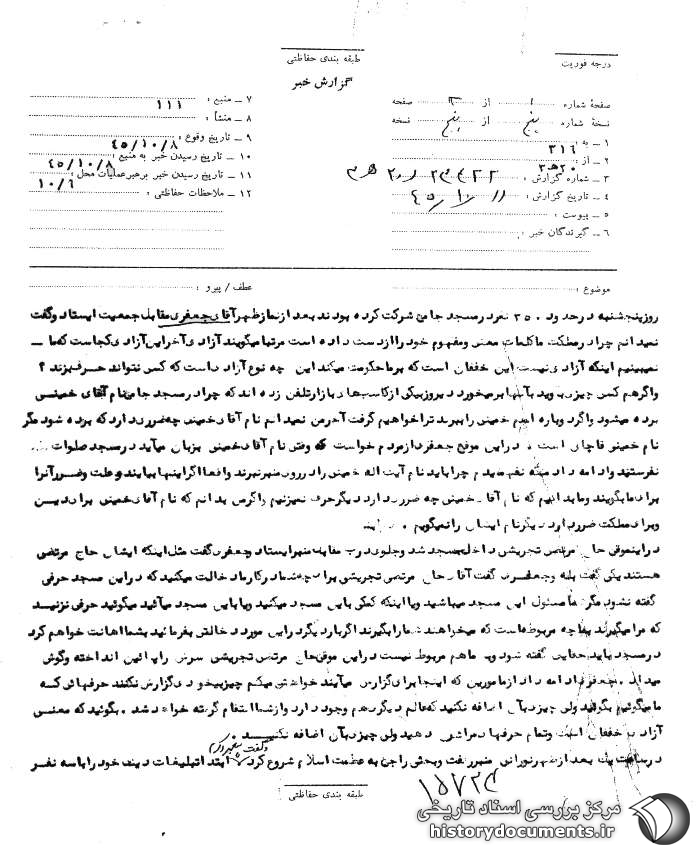 درجه فوریت
طبقه بندی حفاظتی
گزارش خبر
صفحهٔ شماره ۱ از صفحه
نسخهٔ شماره پنج از پنج نسخه
۱ ـ به : ۳۱۶
۲ ـ از : ۲۰ ه ۳
۳ ـ شماره گزارش :
۴ ـ تاریخ گزارش :
۵ ـ پیوست :
۶ ـ گیرندگان خبر :
۷ ـ منبع : ۱۱۱
۸ ـ منشأ :
۹ ـ تاریخ وقوع : ۴۵/۱۰/۸
۱۰ ـ تاریخ رسیدن خبر به منبع : ۴۵/۱۰/۸
۱۱ ـ تاریخ رسیدن خبر برهبر عملیات محل : ۱۰/۶
۱۲ ـ ملاحظات حفاظتی :
موضوع :
عطف / پیرو :
روز پنجشنبه در حدود ۳۵۰ نفر در مسجد جامع شرکت کرده بودند بعد از نماز ظهر آقای جعفری مقابل جمعیت ایستاد و گفت
نمیدانم چرا در مملکت ما کلمات معنی و مفهوم خود را از دست داده است مرتبا میگویند آزادی آخر این آزادی کجاست که ما ـ
نمیبینیم اینکه آزادی نیست این خفقان است که بر ما حکومت میکند این چه نوع آزادی است که کسی نتواند حرف بزند ؟
و اگر هم کسی چیزی بگوید بآنها برمیخورد دیروز یکی از کاسبهای بازار تلفن زده اند که چرا در مسجد جامع نام آقای خمینی
برده میشود و اگر دوباره اسم خمینی را ببرند ترا خواهیم گرفت آخر من نمیدانم نام آقای خمینی چه ضرری دارد که برده شود مگر
نام خمینی قاچاق است در این موقع جعفری از مردم خواست که وقتی نام آقای خمینی بزبان میآید در مسجد صلوات
نفرستید و ادامه داد نفهمیدم چرا باید نام آیت اله خمینی را در روی منبر نبرند واقعا اگر اینها بیایند و علت و ضرر آنرا
برای ما بگویند و ما بدانیم که نام آقای خمینی چه ضرری دارد دیگر حرف نمیزنیم و اگر من بدانم که نام آقای خمینی برای دین
و برای مملکت ضرر دارد دیگر نام ایشان را نمیگویم .
در این موقع حاج مرتضی تجریشی داخل مسجد شد و جلوی درب مقابل منبر ایستاد و جعفری گفت مثل اینکه ایشان حاج مرتضی
هستند یکی گفت بله و جعفری گفت آقای حاج مرتضی تجریشی برای چه شما در کار ما دخالت میکنید که در این مسجد حرفی
گفته نشود مگر شما مسئول این مسجد میباشید و یا اینکه کمکی باین مسجد میکنید و یا باین مسجد میآئید میگوئید حرفی نزنید
که مرا میگیرند بشما چه مربوط است که میخواهند شما را بگیرند اگر بار دیگر در این مورد دخالتی بفرمائید بشما اهانت خواهم کرد
در مسجد باید حقایق گفته شود و بشما هم مربوط نیست در این موقع حاج مرتضی تجریشی سرش را پائین انداخته و گوش
میداد . جعفری ادامه داد از مامورین که اینجا برای گزارش میآیند خواهش میکنم چیز بیخودی گزارش نکنند حرفهائی که
ما میگوئیم بگوئید ولی چیزی بآن اضافه نکنید که عالم دیگر هم وجود دارد و از شما انتقام گرفته خواهد شد . بگوئید که معنی
آزادی خفقان است و تمام حرفها را گزارش دهید ولی چیزی بآن اضافه نکنید .
در ساعت یک بعد از ظهر نورانی منبر رفت و بحثش راجع به عظمت اسلام شروع کرد و گفت پیغمبر اکرم ابتدا تبلیغات دینی خود را با سه نفر
طبقه بندی حفاظتی
۱۵۷۲۴
مرکز بررسی اسناد تاریخی
historydocuments.ir